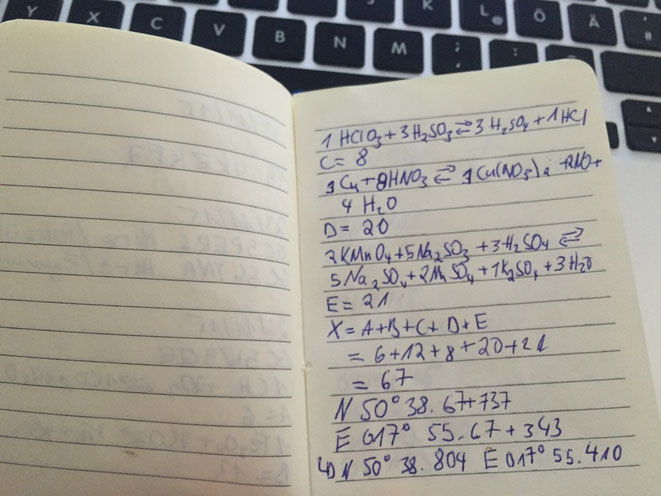 Y X C V B N M ; : L @ Ö Ä
1 HClO3 + 3H2SO3 ⇄ 3 H2SO4 + 1HCl
C = 8
3Cu + 8HNO3 ⇄ 3Cu(NO3)2 + 2NO +
4 H2O
D = 20
2KMnO4 + 5Na2SO3 + 3H2SO4 ⇄
5Na2SO4 + 2MnSO4 + 1K2SO4 + 3H2O
E = 21
X = A+B+C+D+E
= 6+12+8+20+21
= 67
N 50° 38.67+737
E 017° 55.67+343
↳ N 50° 38.804 E 017° 55.410